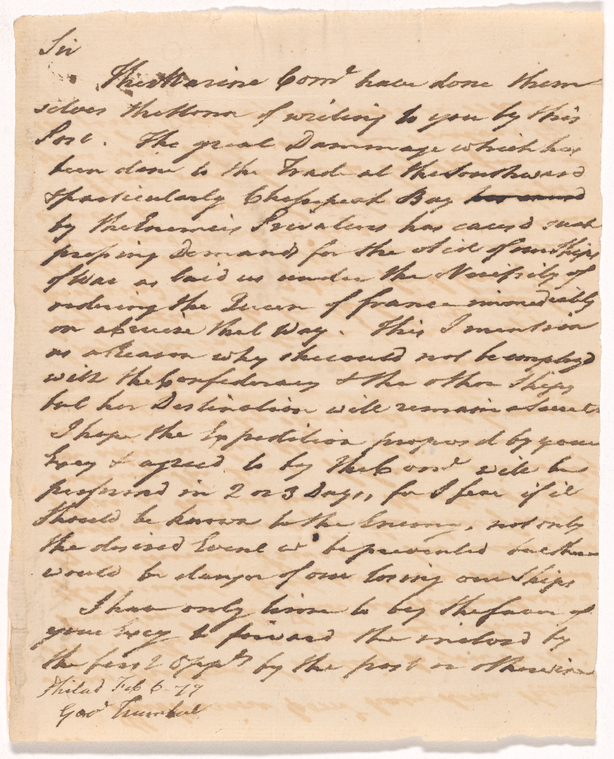 Sir
The Marine Comee have done them
selves the Honor of writing to you by this
Post. The great Dammage which has
been done to the Trade at the Southward
& particularly Chesepeak Bay
by the Enemies Privateers has caused such
pressing Demands for the Aid of our Ships
of War as laid us under the Necessity of
ordering the Queen of france immediately
on a Cruise that Way. This I mention
as a Reason why she could not be employ'd
with the Confederacy & the other Ships
but her Destination will remain a Secret
I hope the Expedition proposed by your
Excy & agreed to by the Comee will be
in 2 or 3 Days, for I fear if it
should be known to the Enemy, not only
the desired Event wd be prevented but there
would be danger of our losing our Ships
I have only time to beg the favor of
your Excy to forward the enclosed by
the first Oppy by the post or otherwise
Philad Feb 6 - 77
Govr Trumbul